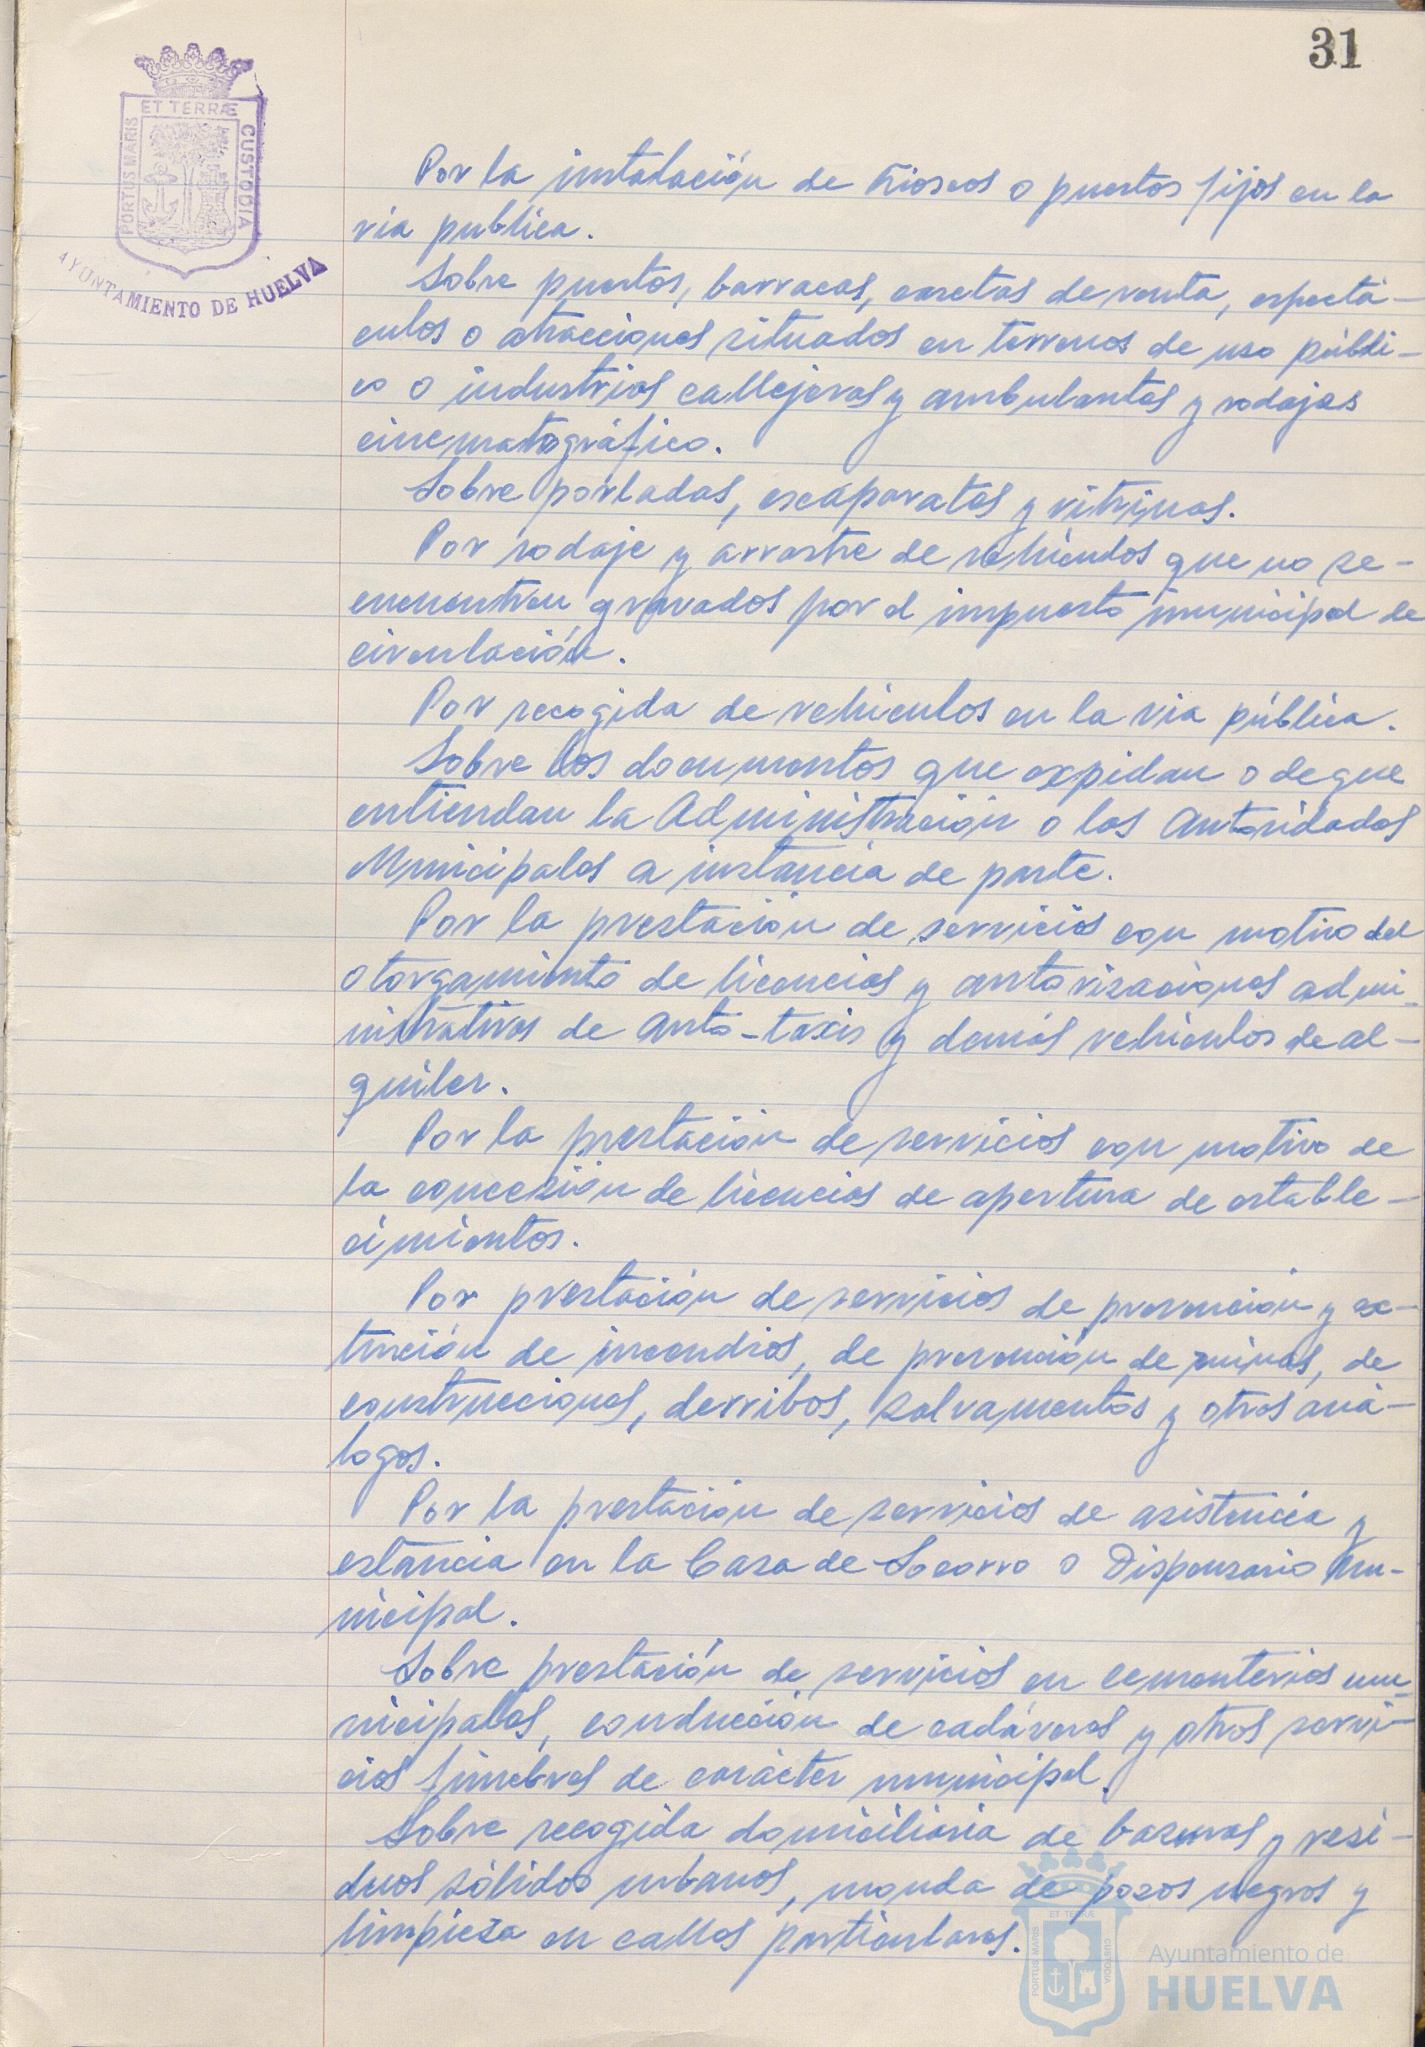 31
ET TERRÆ
PORTUS MARIS
CUSTODIA
AYUNTAMIENTO DE HUELVA
Por la instalación de Kioscos o puestos fijos en la
via publica.
Sobre puestos, barracas, casetas de venta, espectá-
culos o atracciones situados en terrenos de uso públi-
co o industrias callejeras y ambulantes y rodajes
cinematográfico.
Sobre portadas, escaparates y vitrinas.
Por rodaje y arrastre de vehículos que no se-
encuentren gravados por el impuesto municipal de
circulación.
Por recogida de vehículos en la via pública.
Sobre los documentos que expidan o de que
entiendan la Administración o las Autoridades
Municipales a instancia de parte.
Por la prestación de servicios con motivo del
otorgamiento de licencias y autorizaciones admi-
nistrativas de auto-taxis y demás vehículos de al-
quiler.
Por la prestación de servicios con motivo de
la concesión de licencias de apertura de estable-
cimientos.
Por prestación de servicios de prevención y ex-
tinción de incendios, de prevención de ruinas, de
construcciones, derribos, salvamentos y otros aná-
logos.
Por la prestación de servicios de asistencia y
estancia en la Casa de Socorro o Dispensario Mu-
nicipal.
Sobre prestación de servicios en cementerios mu-
nicipales, conducción de cadáveres y otros servi-
cios fúnebres de carácter municipal.
Sobre recogida domiciliaria de basuras y resi-
duos sólidos urbanos, monda de pozos negros y
limpieza en calles particulares.
ET TERRÆ
PORTUS MARIS
CUSTODIA
Ayuntamiento de
HUELVA